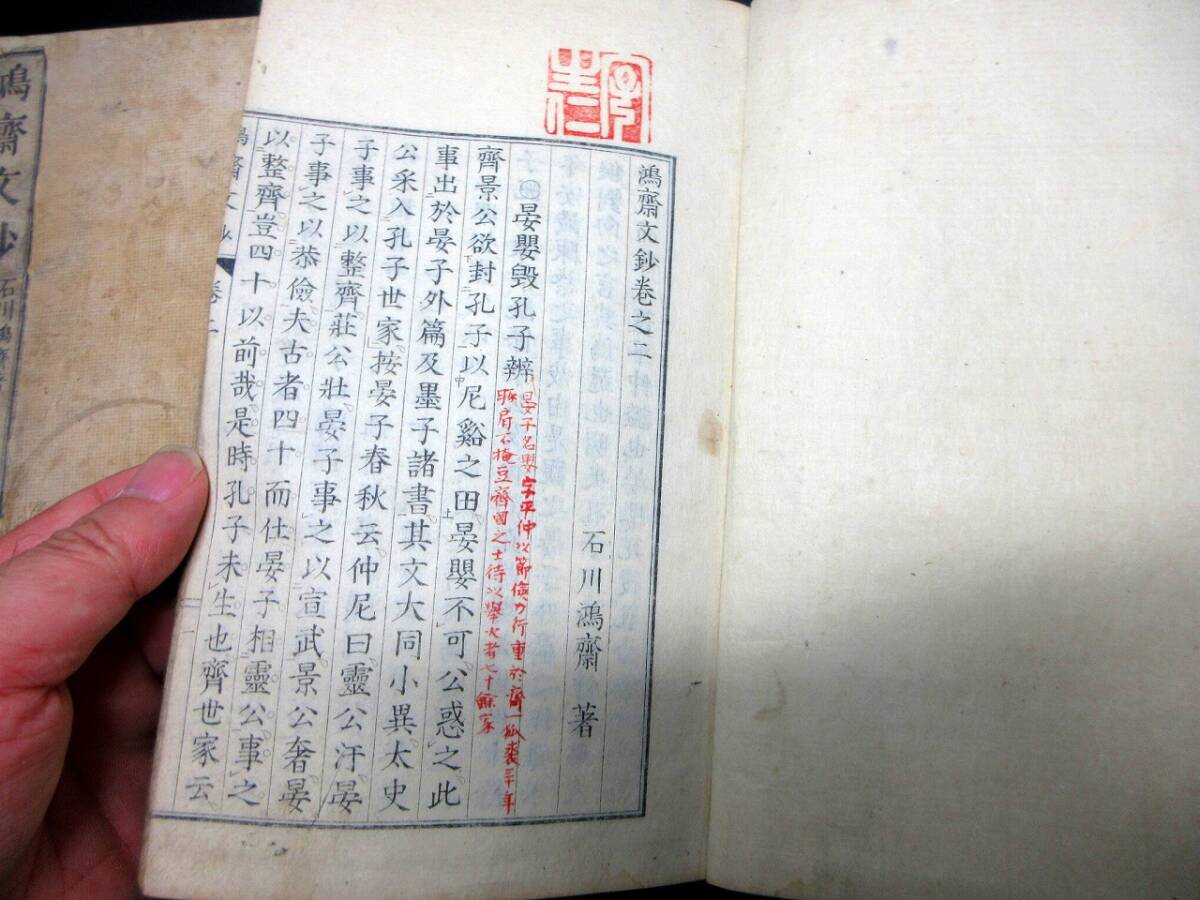 鴻齋文鈔卷之二
石川鴻齋 著
晏嬰毀孔子辨
晏子名嬰字平仲以節儉力行重於齊一狐裘三十年
豚肩不掩豆齊國之士待以舉火者七十餘家
齊景公欲封孔子以尼谿之田晏嬰不可公惑之此
事出於晏子外篇及墨子諸書其文大同小異太史
公采入孔子世家按晏子春秋云仲尼曰靈公汙晏
子事之以整齊莊公壯晏子事之以宣武景公奢晏
子事之以恭儉夫古者四十而仕晏子相靈公事之
以整齊豈四十以前哉是時孔子未生也齊世家云
鴻齋文鈔 卷二
鴻齋文鈔 石川鴻齋